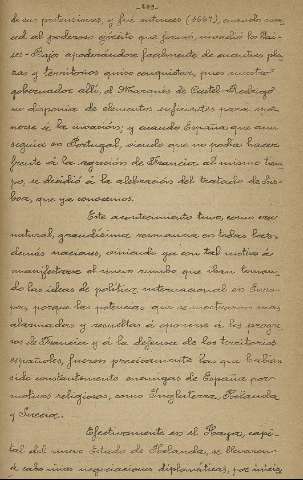 de sus pretensiones, y fué entonces (1667), cuando
ced al poderoso ejército que formó, invadió los Paí-
ses-Bajos apoderándose facilmente de cuantas pla-
zas y territorios quiso conquistar, pues nuestro
gobernador allí, el Marqués de Castel-Rodrigo
no disponia de elementos suficientes para
nerse á la invasión; y cuando España que aun
seguia en Portugal, viendo que no podia hacer
frente á la agresión de Francia al mismo tiem-
po, se decidió á la celebración del tratado de Lis-
boa, que ya conocemos.
Este acontecimiento tuvo, como era
natural, grandísima resonancia en todas las
demás naciones, viniendo ya con tal motivo á
manifestarse el nuevo rumbo que iban toman-
do las ideas de política internacional en Euro-
pa, porque las potencias que se mostraron más
alarmadas y resueltas á oponerse á los progre-
sos de Francia y á la defensa de los territorios
españoles, fueron precisamente las que habían
sido constantemente enemigas de España por
motivos religiosos, como Inglaterra, Holanda
y Suecia.
Efectivamente en el Haya, capi-
tal del nuevo Estado de Holanda, se llevaron
á cabo unas negociaciones diplomáticas, por inicia